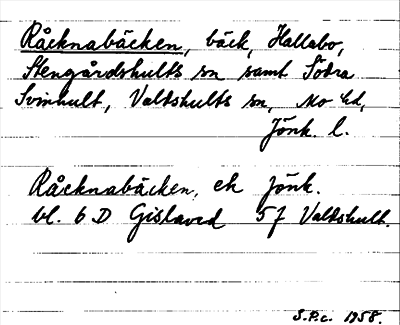 Råcknabäcken, bäck, Hallabo,
Stengårdshults sn samt Södra
Svinhult, Valdshults sn, Mo hd,
Jönk. l.
Råcknabäcken, ek Jönk.
bl. 6 D Gislaved 5 f Valdshult.
S.P.c. 1958.